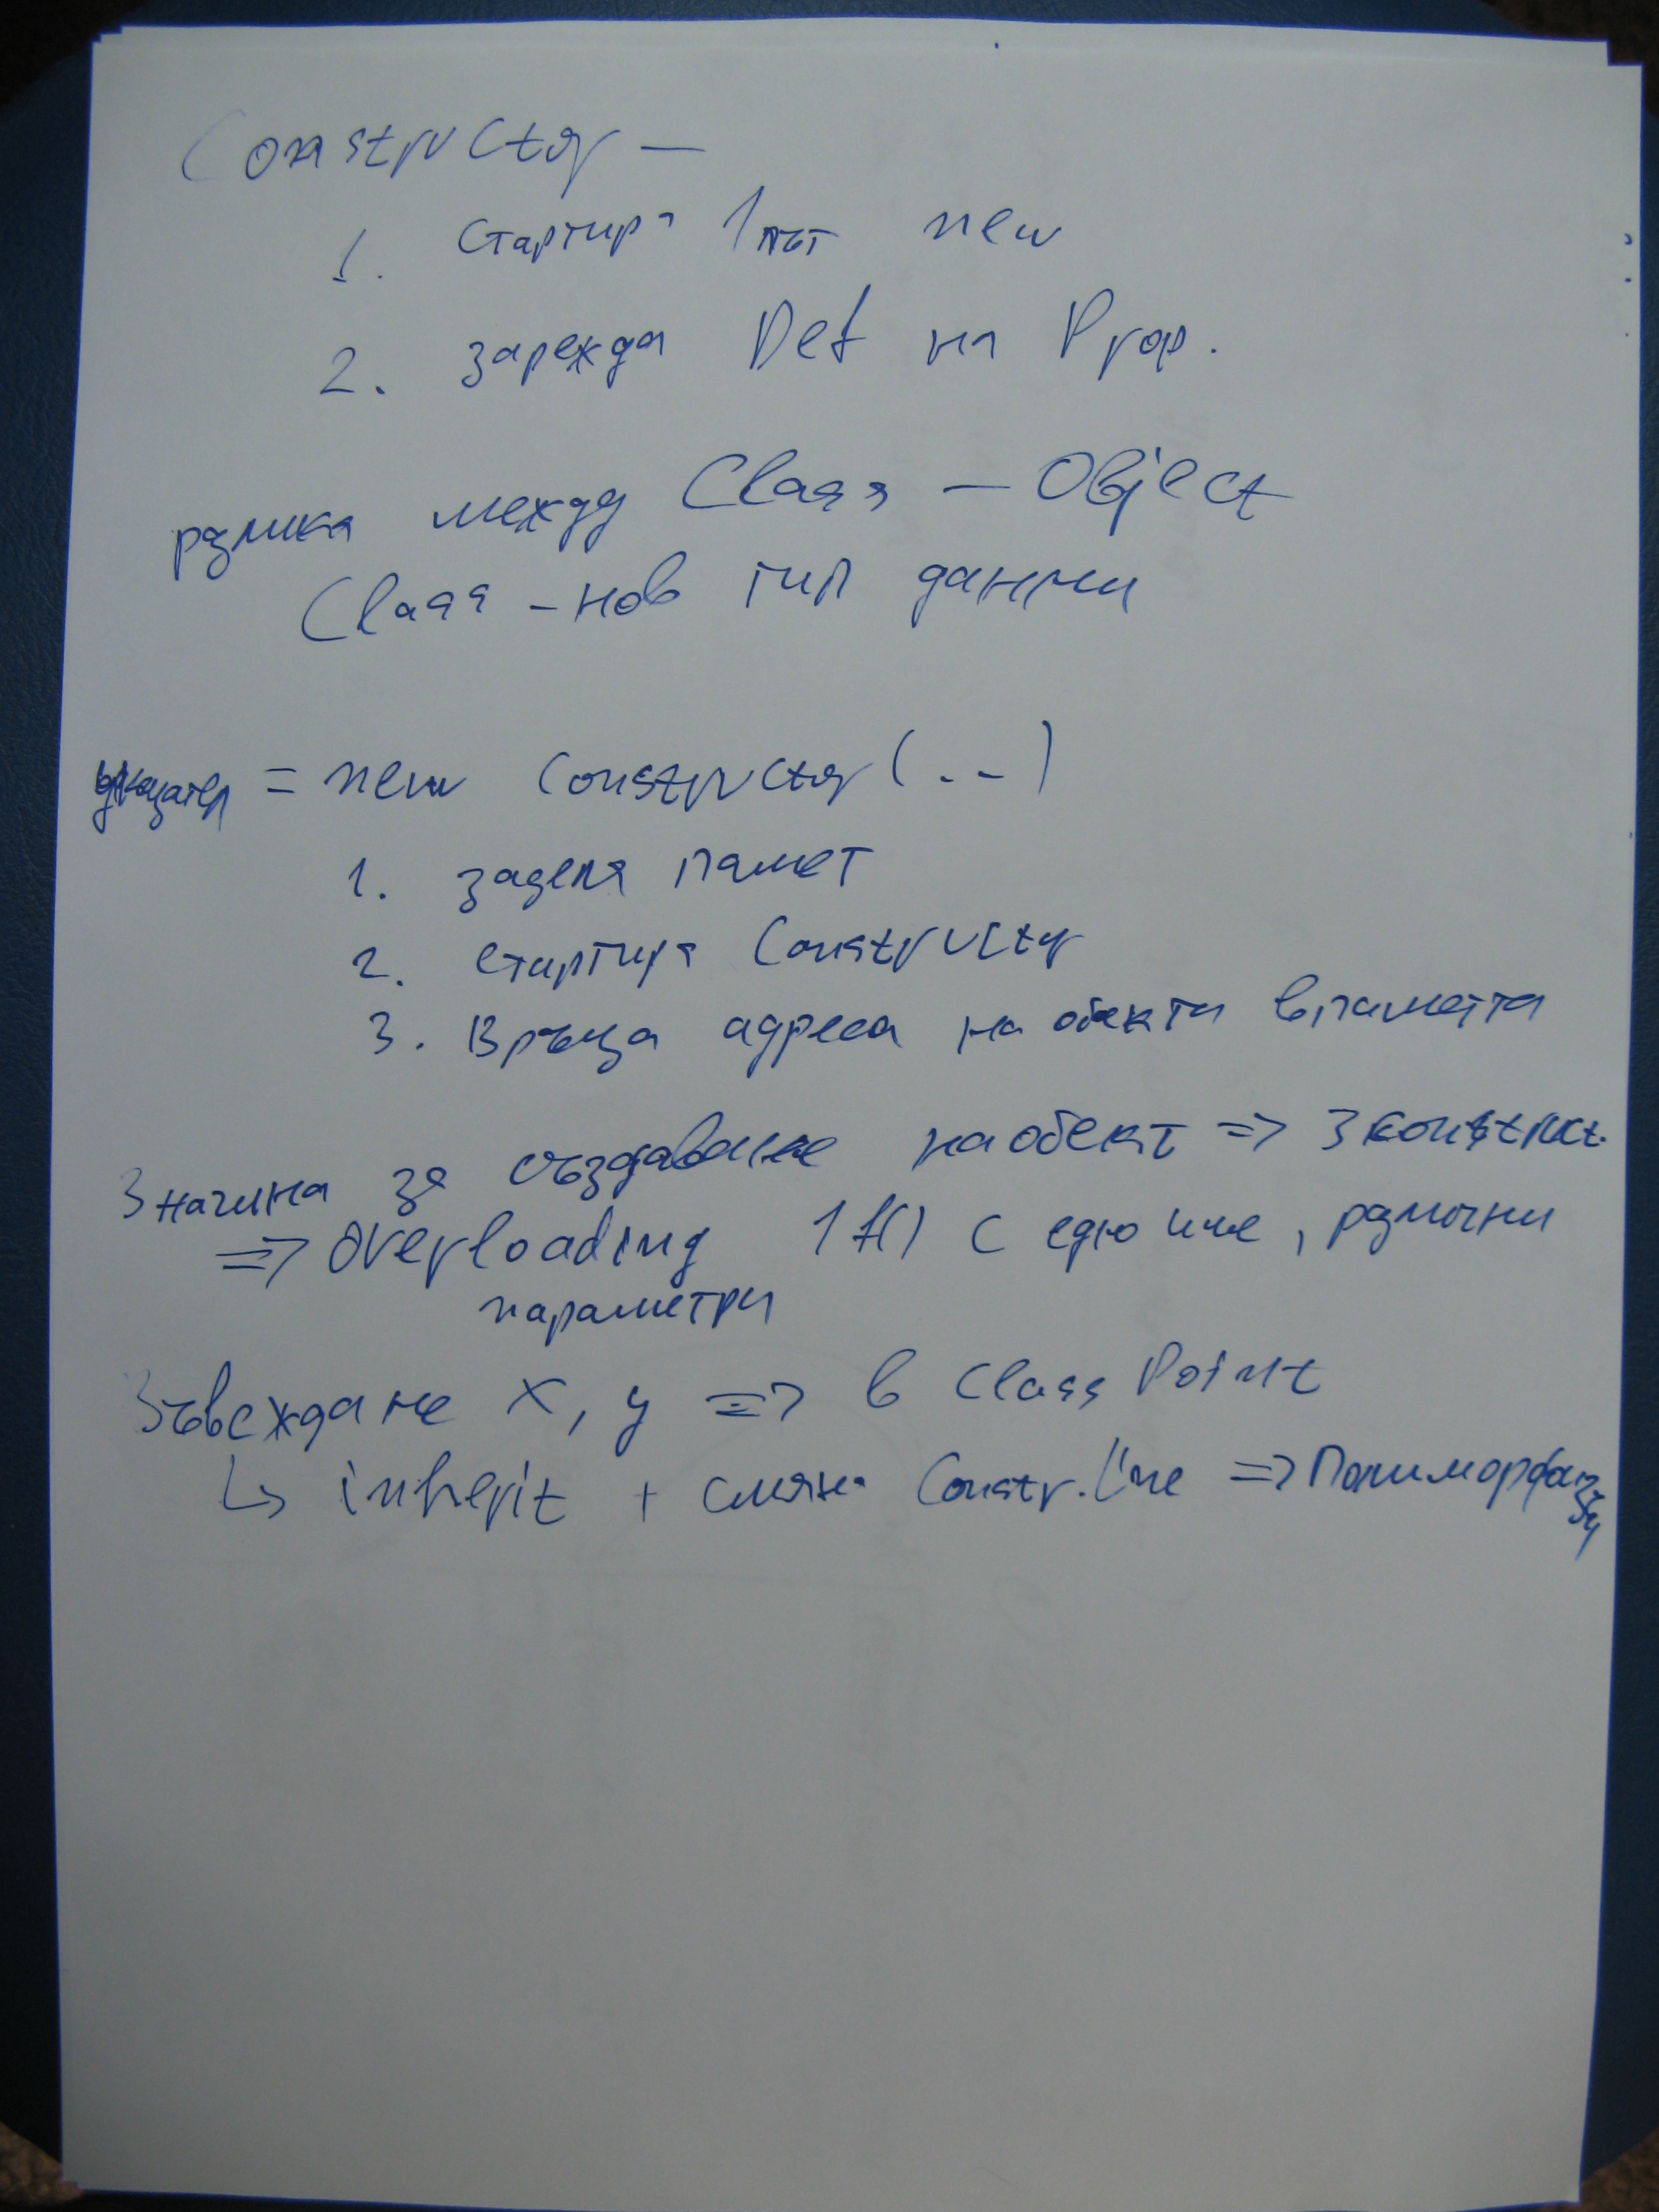 Constructor —
1. Стартира 1 път new
2. зарежда Def на Prop.
разлика между Class — Object
Class – нов тип данни
указател = new Constructor (...)
1. заделя памет
2. стартира Constructor
3. Връща адреса на обекта в паметта
3 начина за създаване на обект => 3 констrukt.
=> Overloading 1 f() с едно име, различни
параметри
Въвеждане x, y => в Class Point
↳ inherit + смяна Constr. line => Полиморфизъм